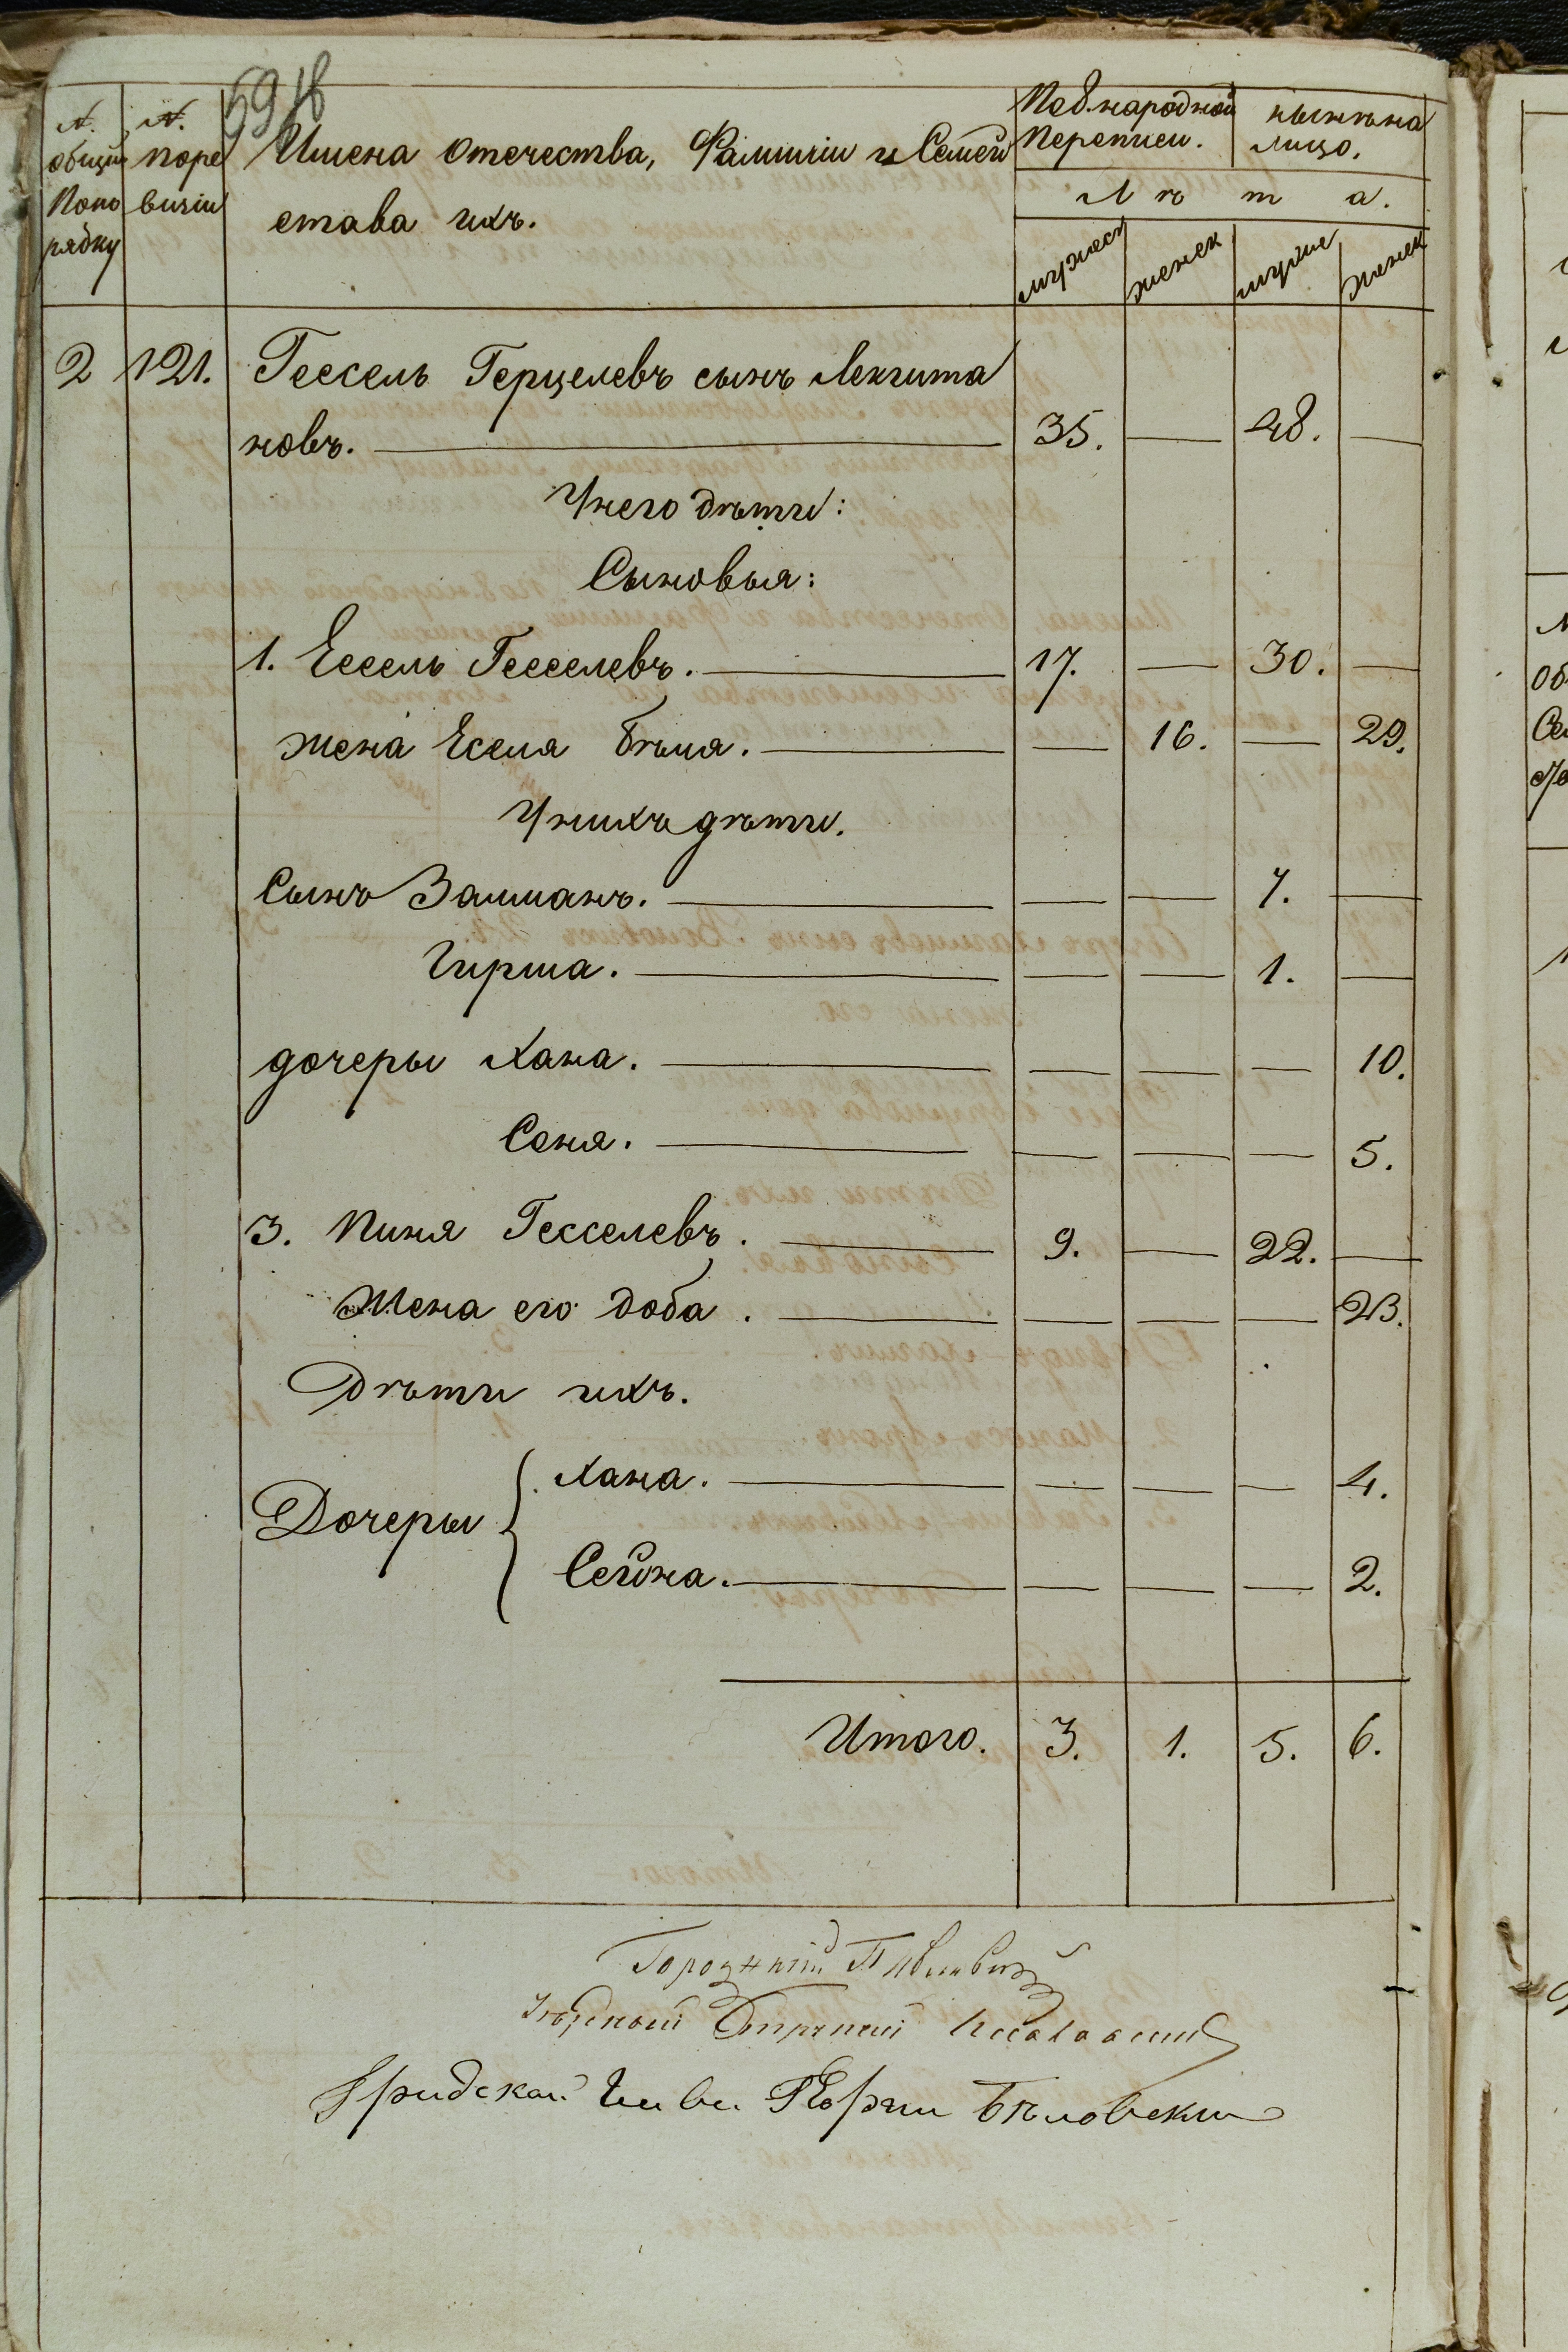 № общій Попо рядку
№ поре визіи
Имена Отечества, Фамиліи и Семей
ства ихъ.
По 8. народной Переписи.
нынѣ на лицо.
Л ѣ т а.
мужеск женск мужск женск
2 121. Гессель Герцелевъ сынъ Лекхтма
новъ. 35. — 48. —
У него дѣти:
Сыновья:
1. Ессель Гесселевъ. 17. — 30. —
жена Есселя Бѣля. — 16. — 29.
У нихъ дѣти.
Сынъ Залманъ. — — 7. —
Гирша. — — 1. —
дочеры Хана. — — — 10.
Соня. — — — 5.
3. Пиня Гесселевъ. 9. — 22. —
Жена его доба. — — — 23.
Дѣти ихъ.
Дочеры { Хана. — — — 4.
Сейна. — — — 2.
Итого. 3. 1. 5. 6.
Городничій
Уѣздный Стряпчій
Бѣловскій